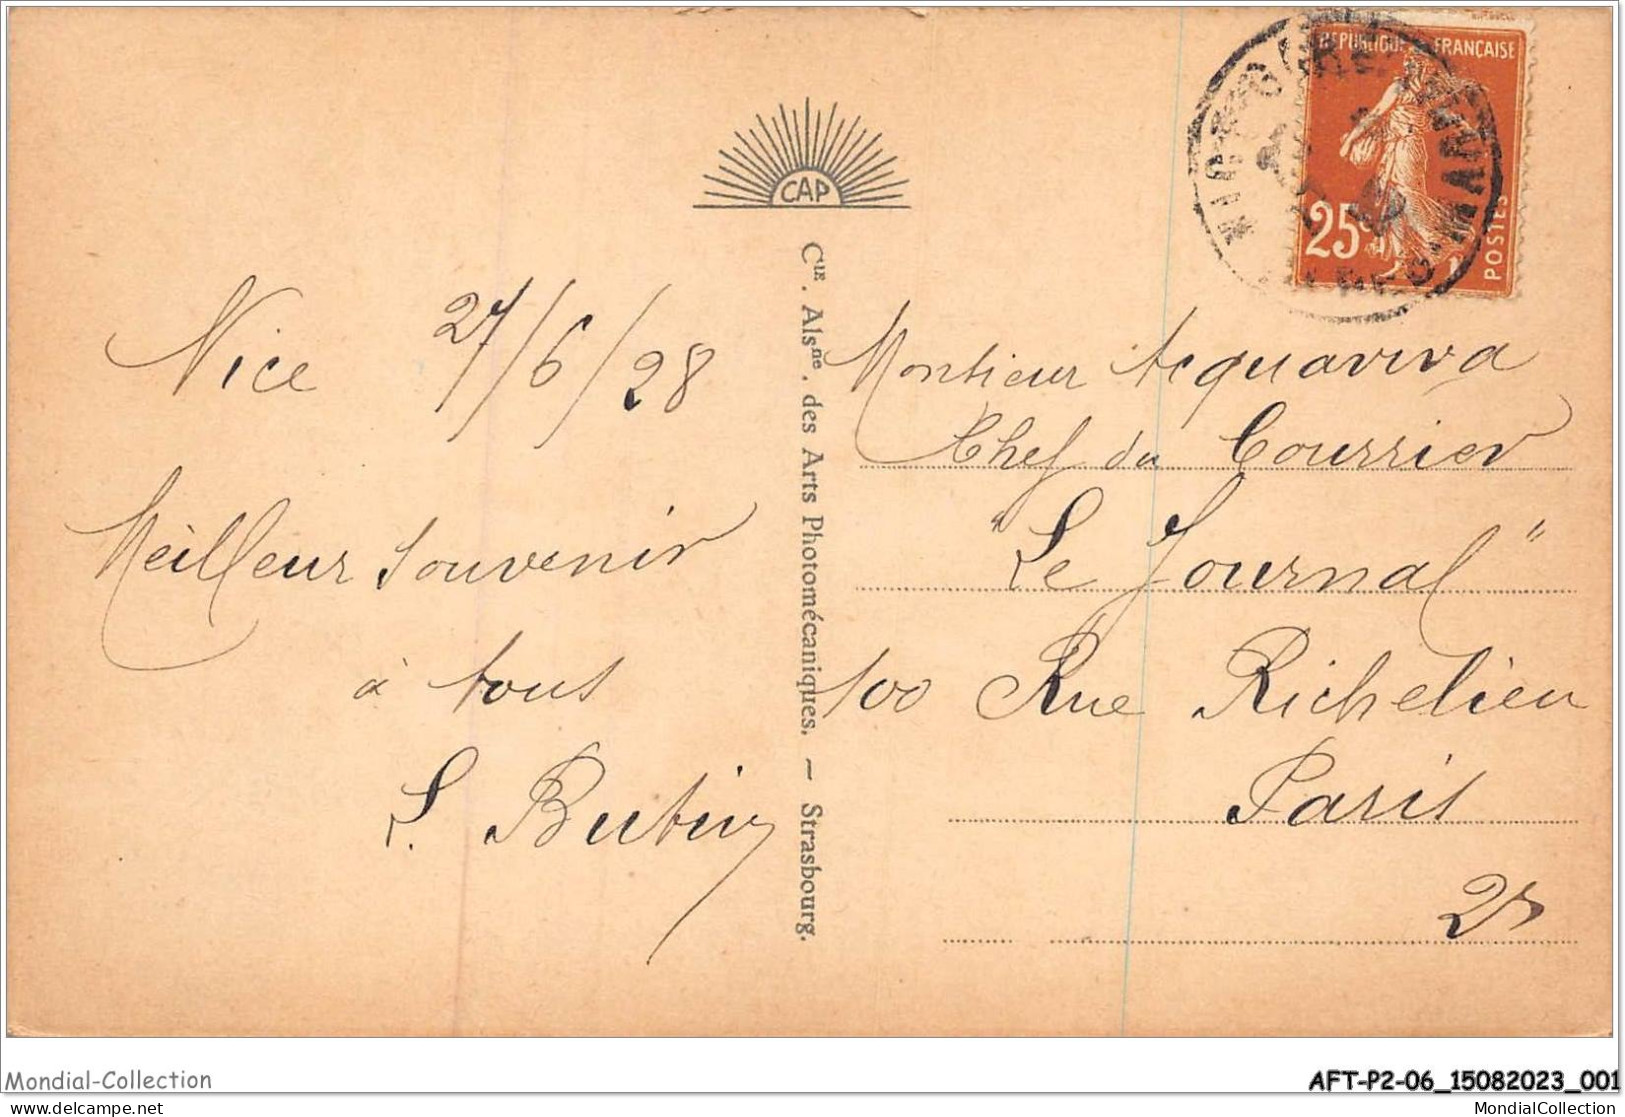 Nice 27/6/28
Meilleur souvenir
à tous
CAP
Cie. Alsne. des Arts Photomécaniques. — Strasbourg.
RÉPUBLIQUE FRANÇAISE
25c
POSTES
NICE GARE
Monsieur Acquaviva
Chef du Courrier
"Le Journal"
100 Rue Richelieu
Paris
Mondial-Collection
AFT-P2-06_15082023_001
www.delcampe.net
MondialCollection